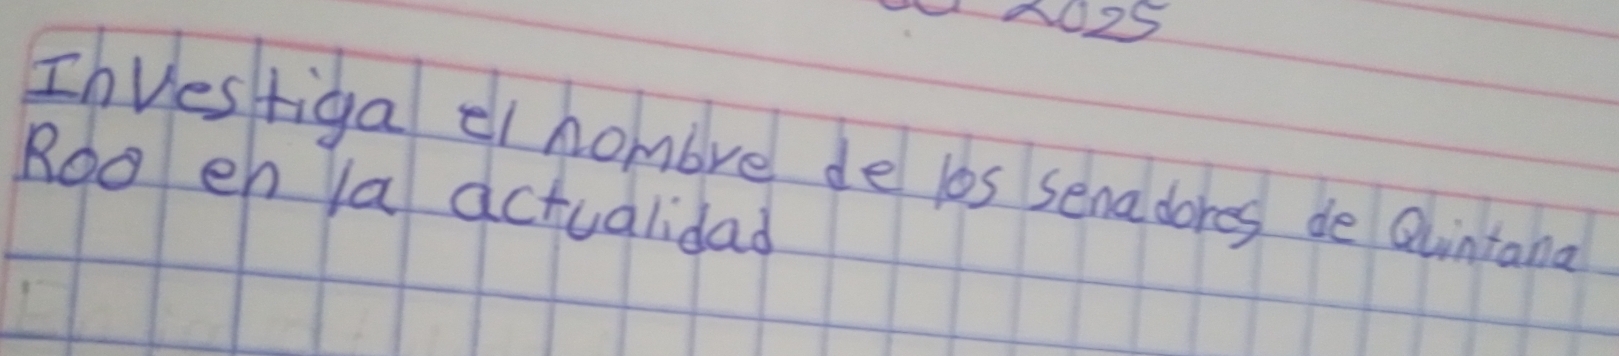 2025
Investiga el nombre de los senadores de Quintana
Roo en la actualidad